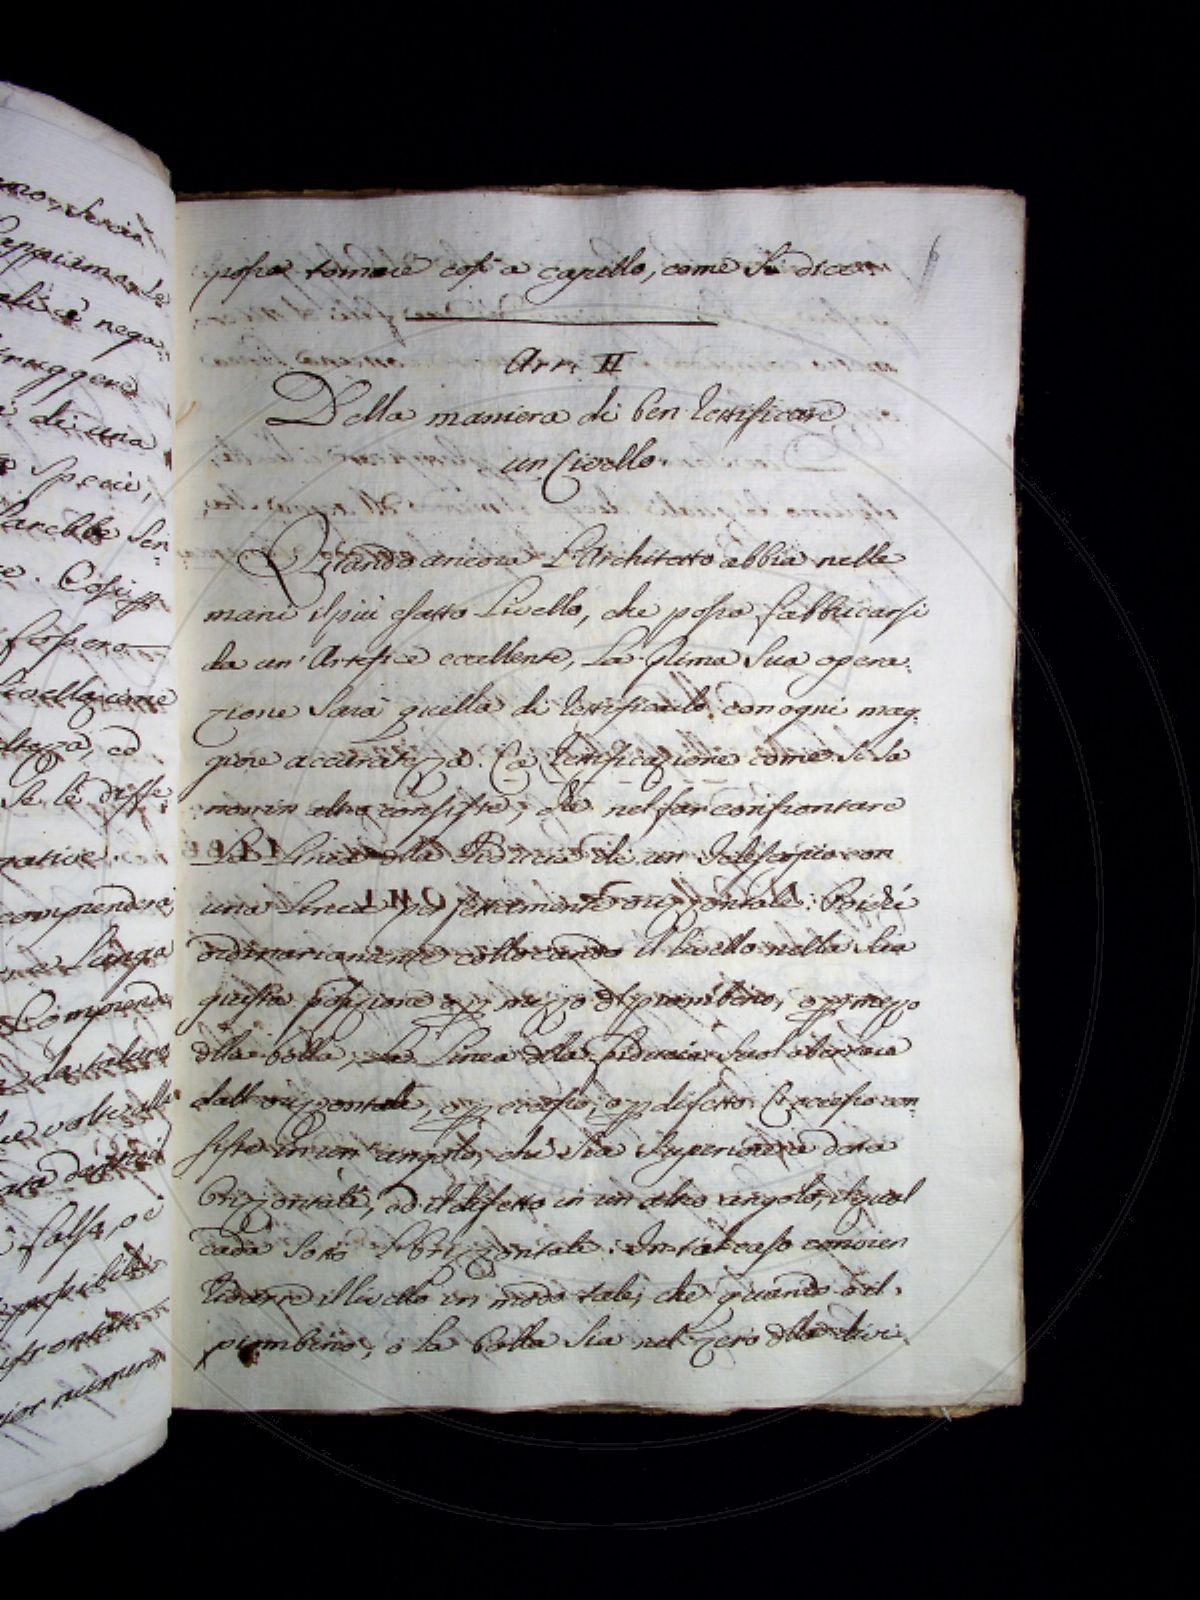 possa tornare così a capello, come si dice
Art. II
Della maniera di ben rettificare
un Livello
Quando ancora l'Architetto abbia nelle
mani il più esatto Livello, che possa fabbricarsi
da un' Artefice eccellente, la prima sua opera:
zione sarà quella di rettificarlo con ogni mag:
giore accuratezza. La rettificazione come si sa
non in altro consiste, che nel far confrontare
la Linea della Fiducia di un Telescopio con
una Linea perfettamente orizzontale: Poichè
ordinariamente collocando il livello nella sua
giusta posizione o per mezzo del piombino, o per mezzo
della bolla, la Linea della fiducia suol aberrare
dall'orizzontale, o per eccesso, o per difetto. L'eccesso con:
siste in un angolo, che sia superiore a detta
Orizzontale, ed il difetto in un altro angolo, il qual
cada sotto l'Orizzontale. In tal caso convien
ridurre il livello in modo tale, che quando o il
piombino, o la bolla sia nel Zero della divi
negative
comprenderà
Lunga
da taluno
volte alla
falsa, o è
di una
Specie,
sarebbe sen
Livellazione
ed
se le diffe